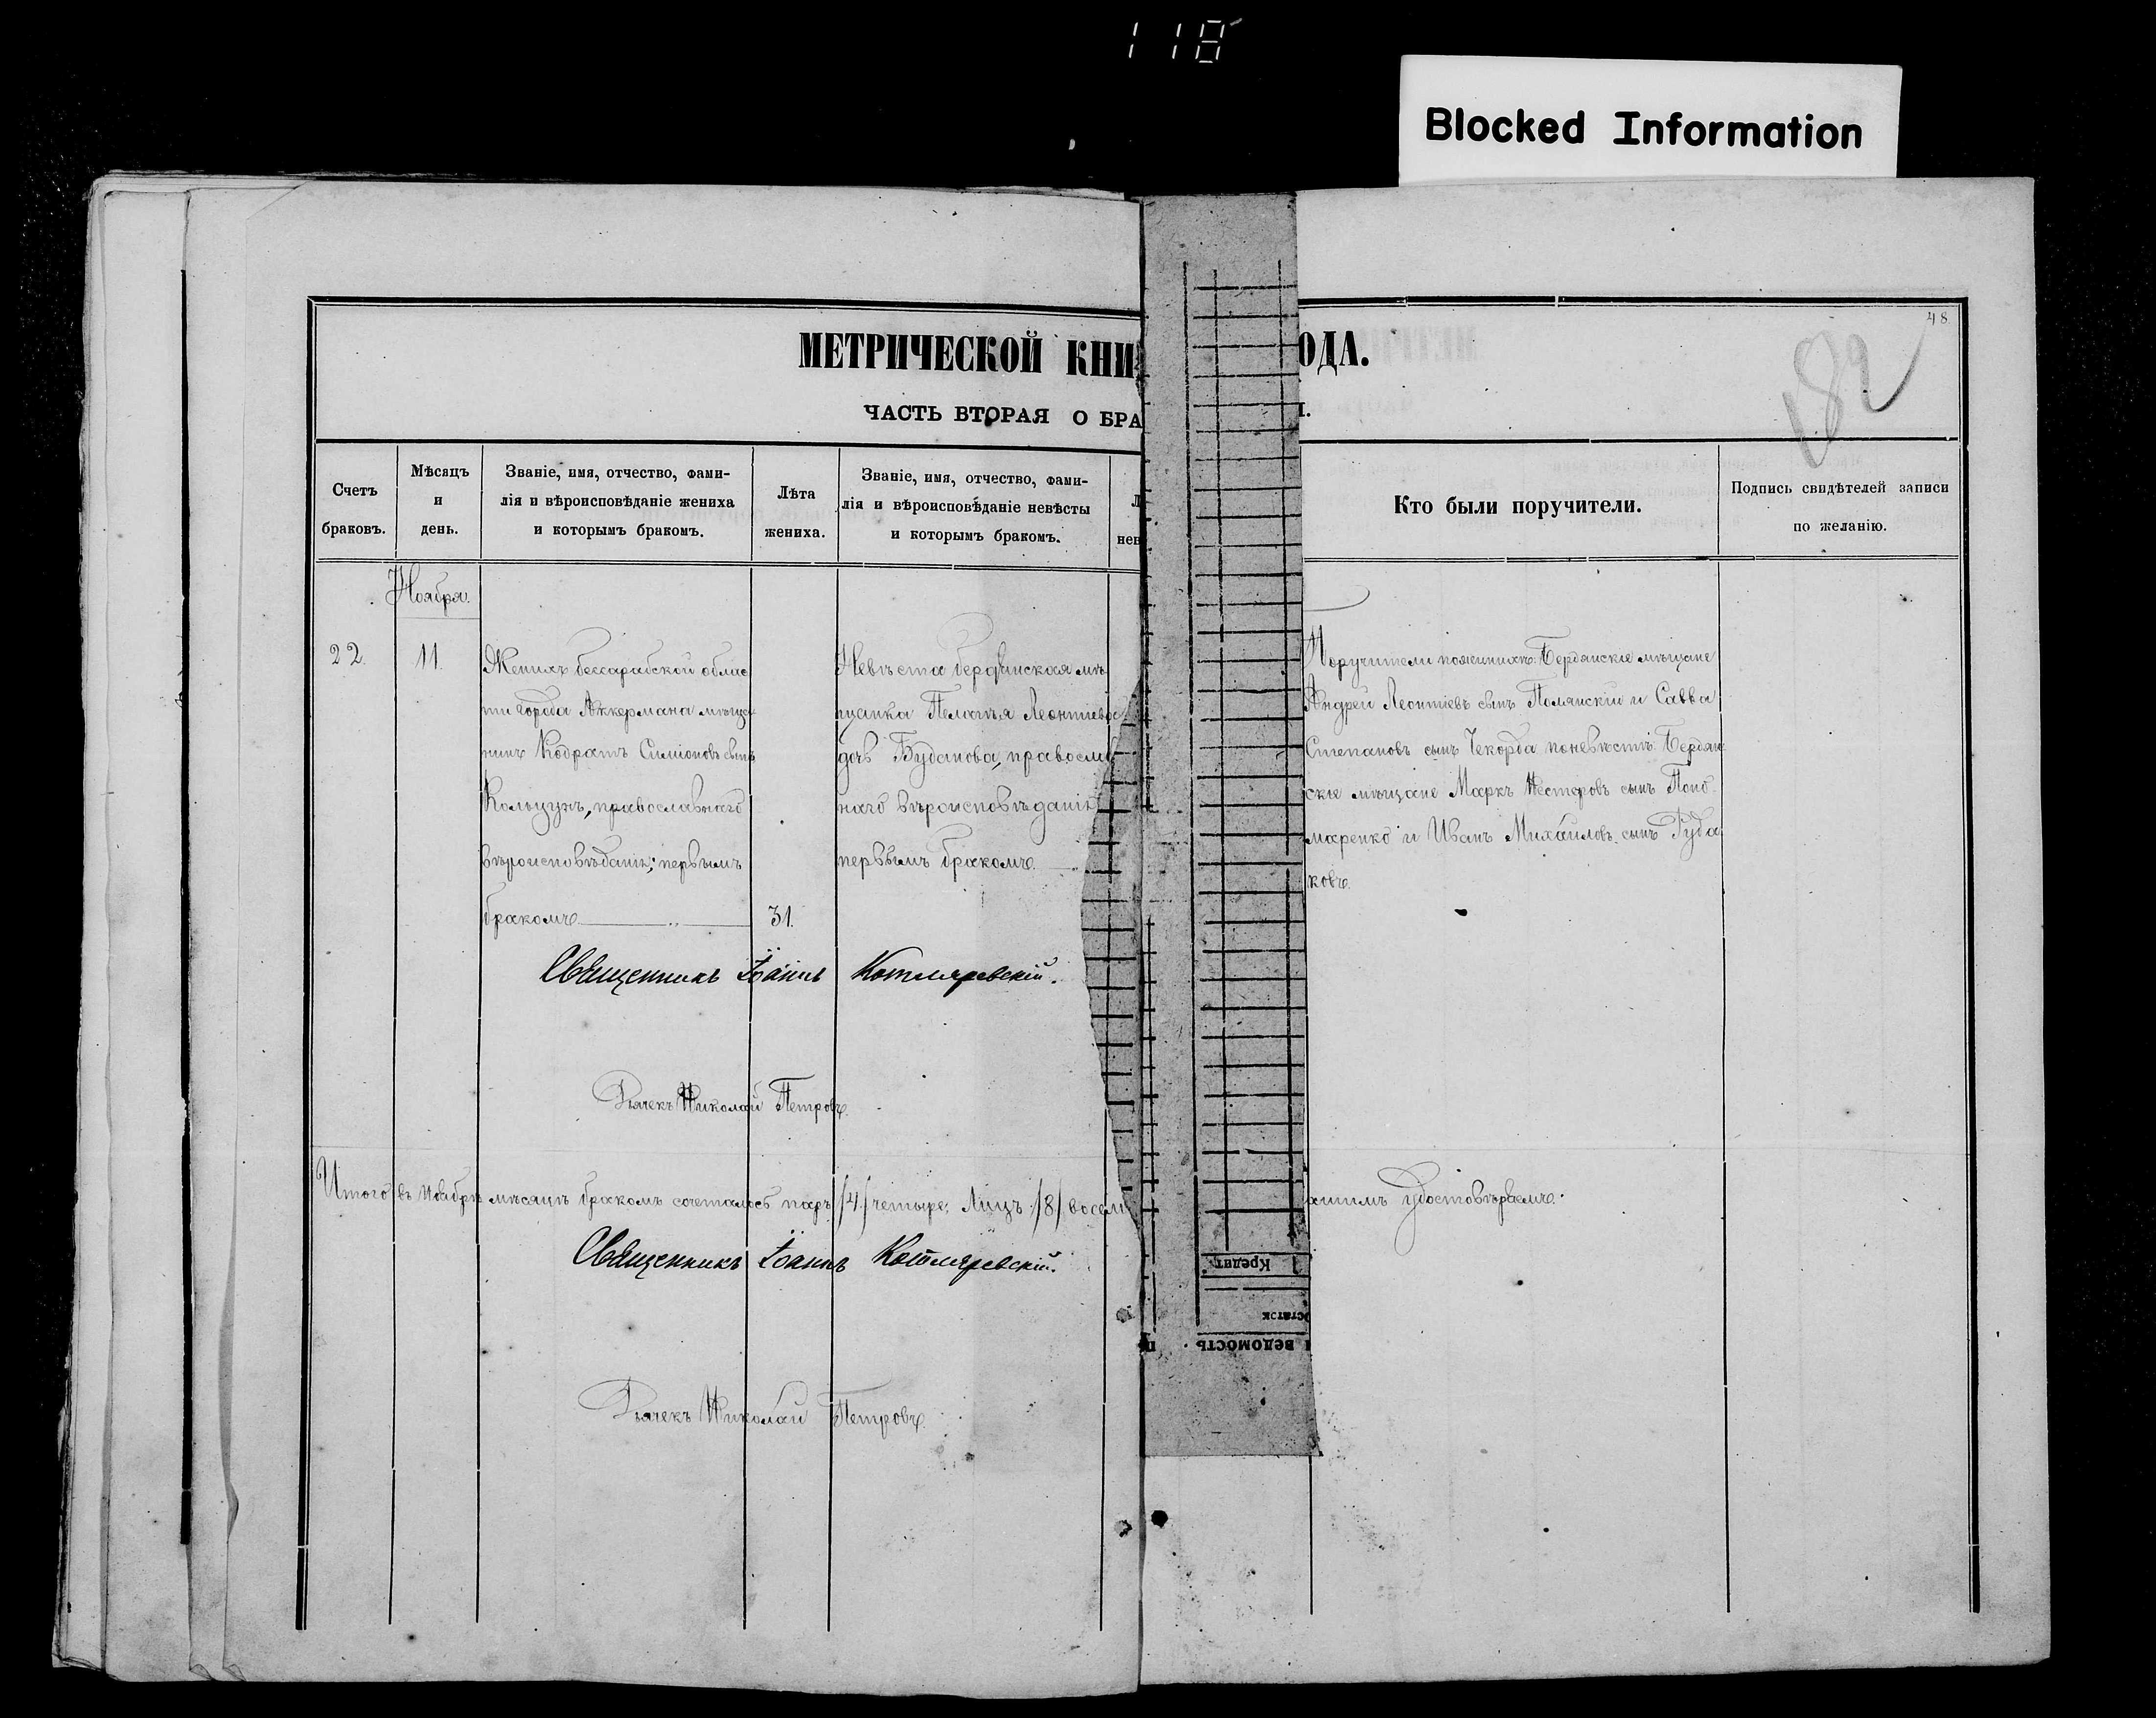 118
Blocked Information
48.
182
МЕТРИЧЕСКОЙ КНИ ОДА.
ЧАСТЬ ВТОРАЯ О БРА
Счетъ браковъ.
Мѣсяцъ и день.
Званіе, имя, отчество, фами-
лія и вѣроисповѣданіе жениха
и которымъ бракомъ.
Лѣта жениха.
Званіе, имя, отчество, фами-
лія и вѣроисповѣданіе невѣсты
и которымъ бракомъ.
Л
нев
Кто были поручители.
Подпись свидѣтелей записи
по желанію.
Ноября.
22.
11.
Женихъ бессарабской облас
ти города Аккермана мѣща
нинъ Кодратъ Симіоновъ сынъ
Кольцунъ, православнаго
вѣроисповѣданія; первымъ
бракомъ
31.
Невѣста бердянская мѣ
щанка Пелагѣя Леонтіева
дочь Буданова, православ
наго вѣроисповѣданія
первымъ бракомъ.
Поручители поженихѣ: Бердянскіе мѣщане
Андрей Леонтіевъ сынъ Полянскій и Савва
Степановъ сынъ Чекорда поневѣстѣ: Бердян
скіе мѣщане Маркъ Нестеровъ сынъ Поно
маренко и Иванъ Михайловъ сынъ Гуда
ковъ.
Священникъ Іоаннъ Котляревскій.
Дьячекъ Николай Петровъ.
Итого въ Ноябрѣ мѣсяцѣ бракомъ сочеталось паръ /4/ четыре; Лицъ /8/ восем
удостовѣряемъ.
Священникъ Іоаннъ Котляревскій.
Дьячекъ Николай Петровъ.
Кредитъ
статок
ВЕДОМОСТЬ